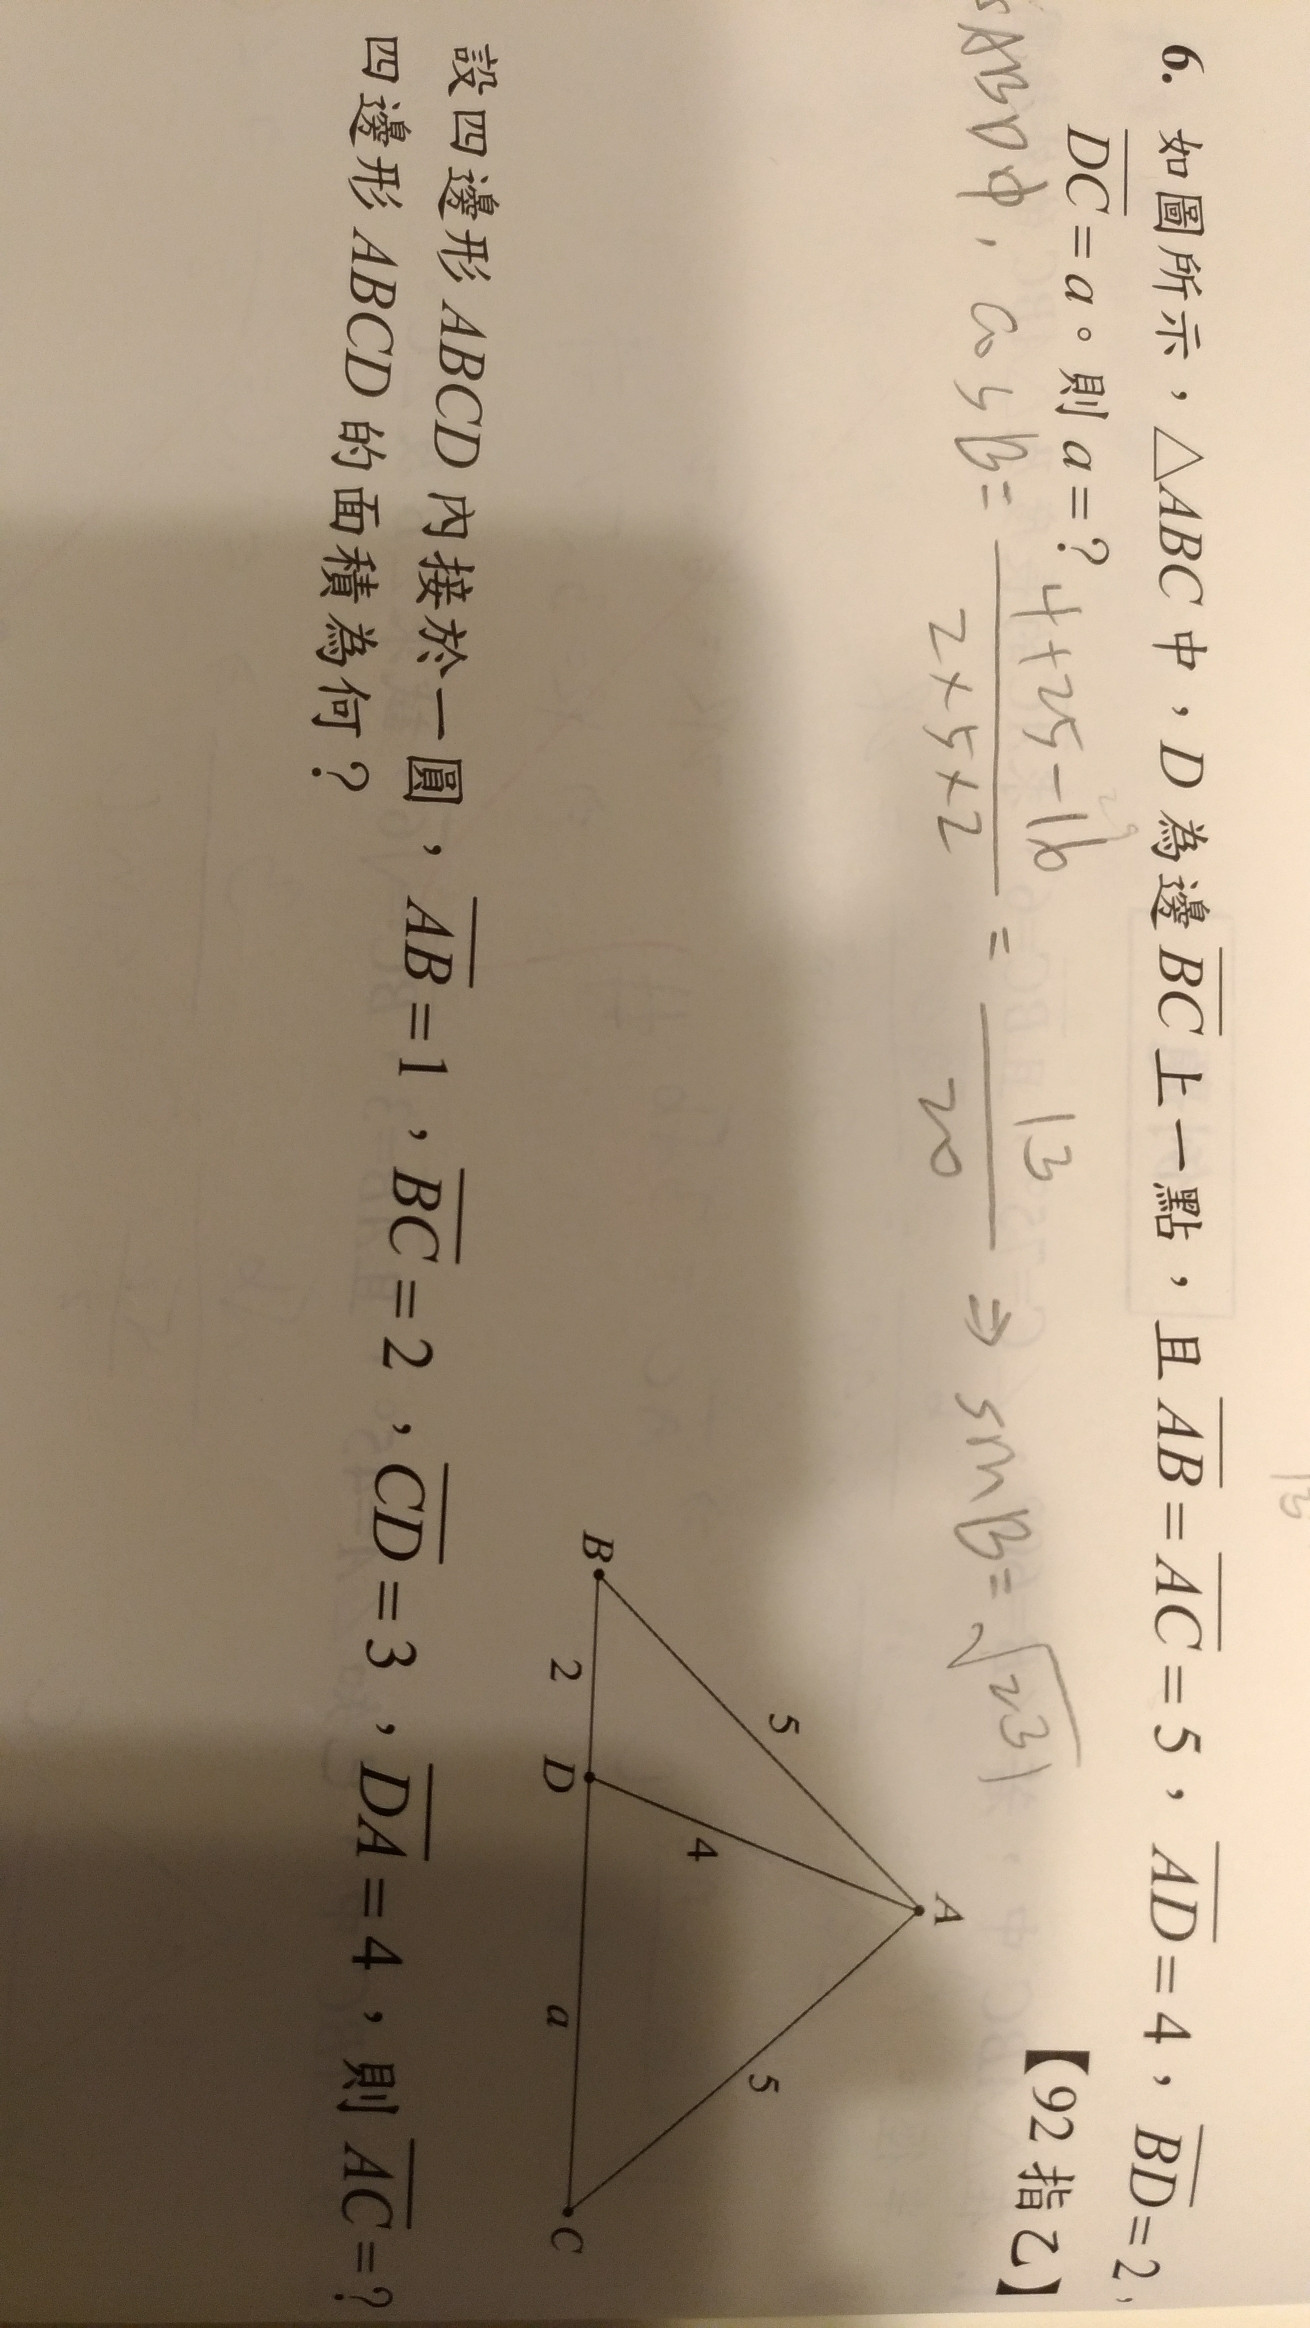 6. 如圖所示，△ABC中，D為邊BC上一點，且AB=AC=5，AD=4，BD=2，
DC=a。則a=?
【92指乙】
ABD中，cosB= 4+25-16 / 2×5×2 = 13 / 20 ⇒ sinB=√231
A
5
5
4
B
2
D
a
C
設四邊形ABCD內接於一圓，AB=1，BC=2，CD=3，DA=4，則AC=?
四邊形ABCD的面積為何？